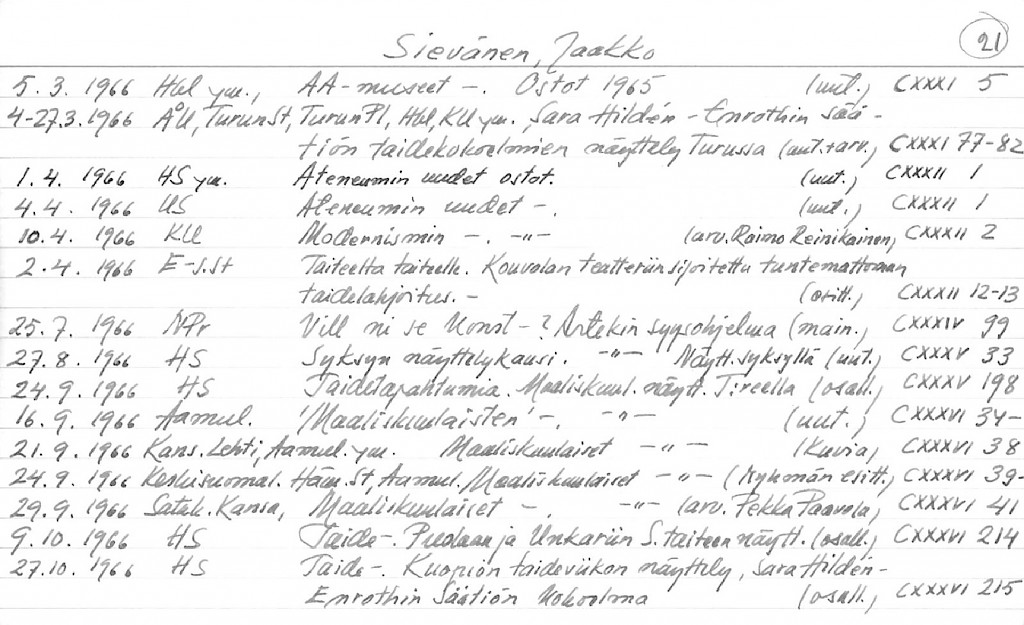 21
Sievänen, Jaakko
5.3. 1966 Hbl ym., AA-museet -. Ostot 1965 (uut.) CXXXI 5
4-27.3.1966 ÅU, TurunSt, TurunPl, Hbl, KU ym. Sara Hildén - Enrothin sää-
tiön taidekokoelmien näyttely Turussa (uut.+arv.) CXXXI 77-82
1.4. 1966 HS ym. Ateneumin uudet ostot. (uut.) CXXXII 1
4.4. 1966 US Ateneumin uudet -. (uut.) CXXXII 1
10.4. 1966 KU Modernismin -. -"- (arv. Raimo Reinikainen) CXXXII 2
2.4. 1966 E-S.St Taiteelta taiteelle. Kouvolan teatteriin sijoitettu tuntemattoman
taidelahjoitus. - (esitt.) CXXXII 12-13
25.7. 1966 NPr Vill ni se konst - ? Artekin syysohjelma (main.) CXXXIV 99
27.8. 1966 HS Syksyn näyttelykausi. -"- Näytt. syksyllä (uut.) CXXXV 33
24.9. 1966 HS Taidetapahtumia. Maaliskuul. näytt. T:reella (osall.) CXXXV 198
16.9. 1966 Aamul. 'Maaliskuulaisten' -. -"- (uut.) CXXXVI 34-
21.9. 1966 Kans. Lehti, Aamul. ym. Maaliskuulaiset -"- (kuvia) CXXXVI 38
24.9. 1966 Keskisuomal. Häm.St, Aamul. Maaliskuulaiset -"- (ryhmän esitt.) CXXXVI 39-
29.9. 1966 Satak. Kansa, Maaliskuulaiset -. -"- (arv. Pekka Paavola) CXXXVI 41
9.10. 1966 HS Taide-. Puolaan ja Unkariin S. taiteen näytt. (osall.) CXXXVI 214
27.10. 1966 HS Taide-. Kuopion taideviikon näyttely, Sara Hildén-
Enrothin Säätiön kokoelma (osall.) CXXXVI 215